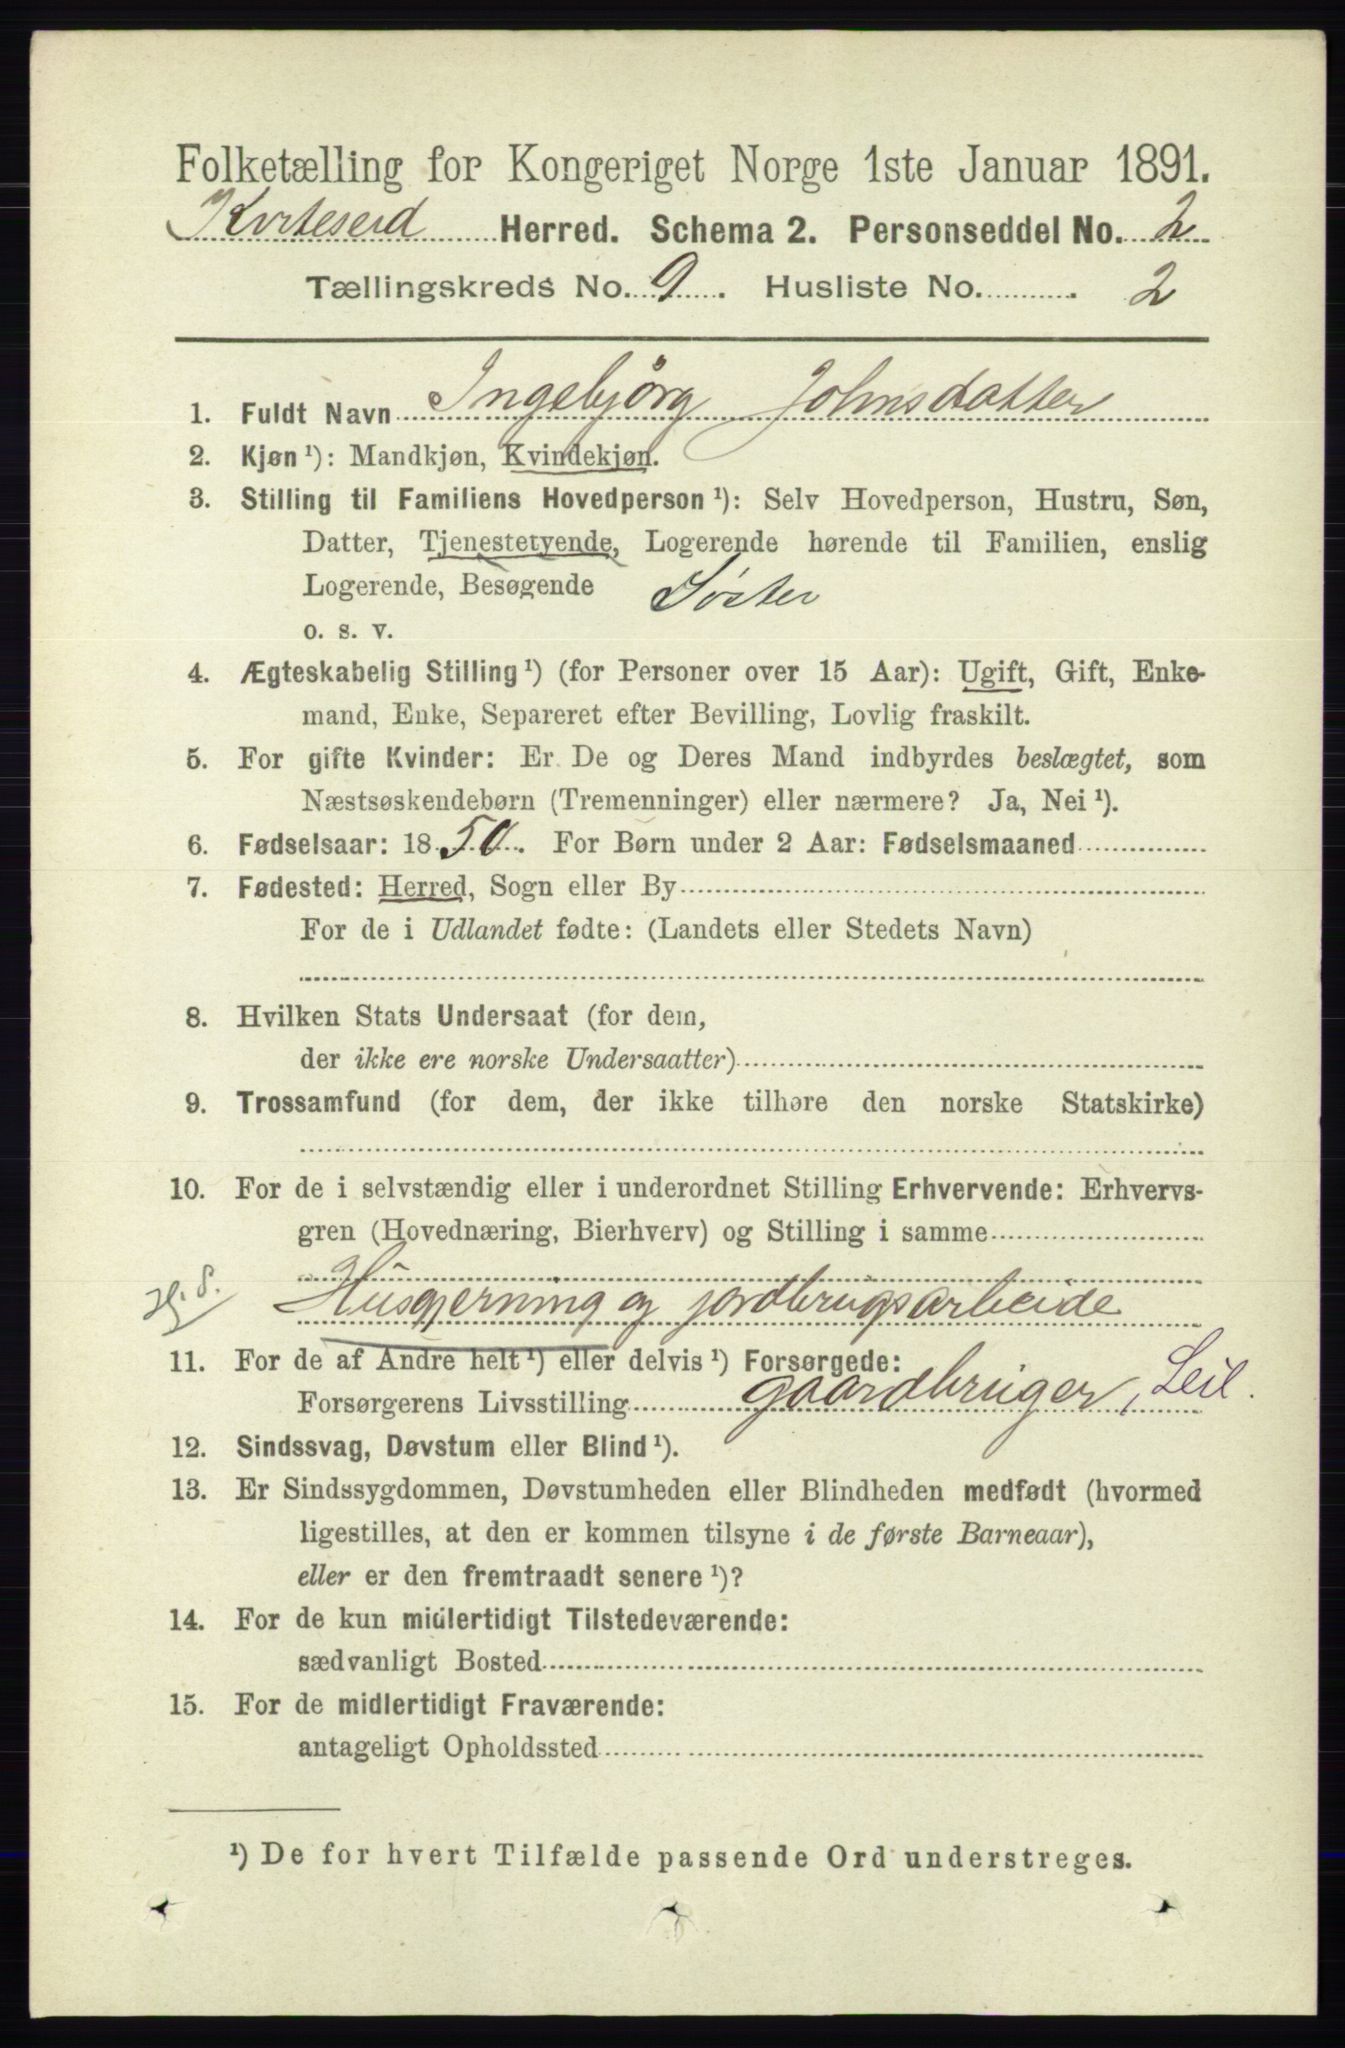 Folketælling for Kongeriget Norge 1ste Januar 1891.
Kviteseid Herred. Schema 2. Personseddel No. 2
Tællingskreds No. 9. Husliste No. 2
1. Fuldt Navn Ingebjörg Johnsdatter
2. Kjøn ¹): Mandkjøn, Kvindekjøn.
3. Stilling til Familiens Hovedperson ¹): Selv Hovedperson, Hustru, Søn,
Datter, Tjenestetyende, Logerende hørende til Familien, enslig
Logerende, Besøgende Söster
o. s. v.
4. Ægteskabelig Stilling ¹) (for Personer over 15 Aar): Ugift, Gift, Enke-
mand, Enke, Separeret efter Bevilling, Lovlig fraskilt.
5. For gifte Kvinder: Er De og Deres Mand indbyrdes beslægtet, som
Næstsøskendebørn (Tremenninger) eller nærmere? Ja, Nei ¹).
6. Fødselsaar: 1850. For Børn under 2 Aar: Fødselsmaaned
7. Fødested: Herred, Sogn eller By
For de i Udlandet fødte: (Landets eller Stedets Navn)
8. Hvilken Stats Undersaat (for dem,
der ikke ere norske Undersaatter)
9. Trossamfund (for dem, der ikke tilhøre den norske Statskirke)
10. For de i selvstændig eller i underordnet Stilling Erhvervende: Erhvervs-
gren (Hovednæring, Bierhverv) og Stilling i samme
Husgjerning og jordbrugsarbeide
11. For de af Andre helt ¹) eller delvis ¹) Forsørgede:
Forsørgerens Livsstilling gaardbruger, Leil.
12. Sindssvag, Døvstum eller Blind ¹).
13. Er Sindssygdommen, Døvstumheden eller Blindheden medfødt (hvormed
ligestilles, at den er kommen tilsyne i de første Barneaar),
eller er den fremtraadt senere ¹)?
14. For de kun midlertidigt Tilstedeværende:
sædvanligt Bosted
15. For de midlertidigt Fraværende:
antageligt Opholdssted
¹) De for hvert Tilfælde passende Ord understreges.